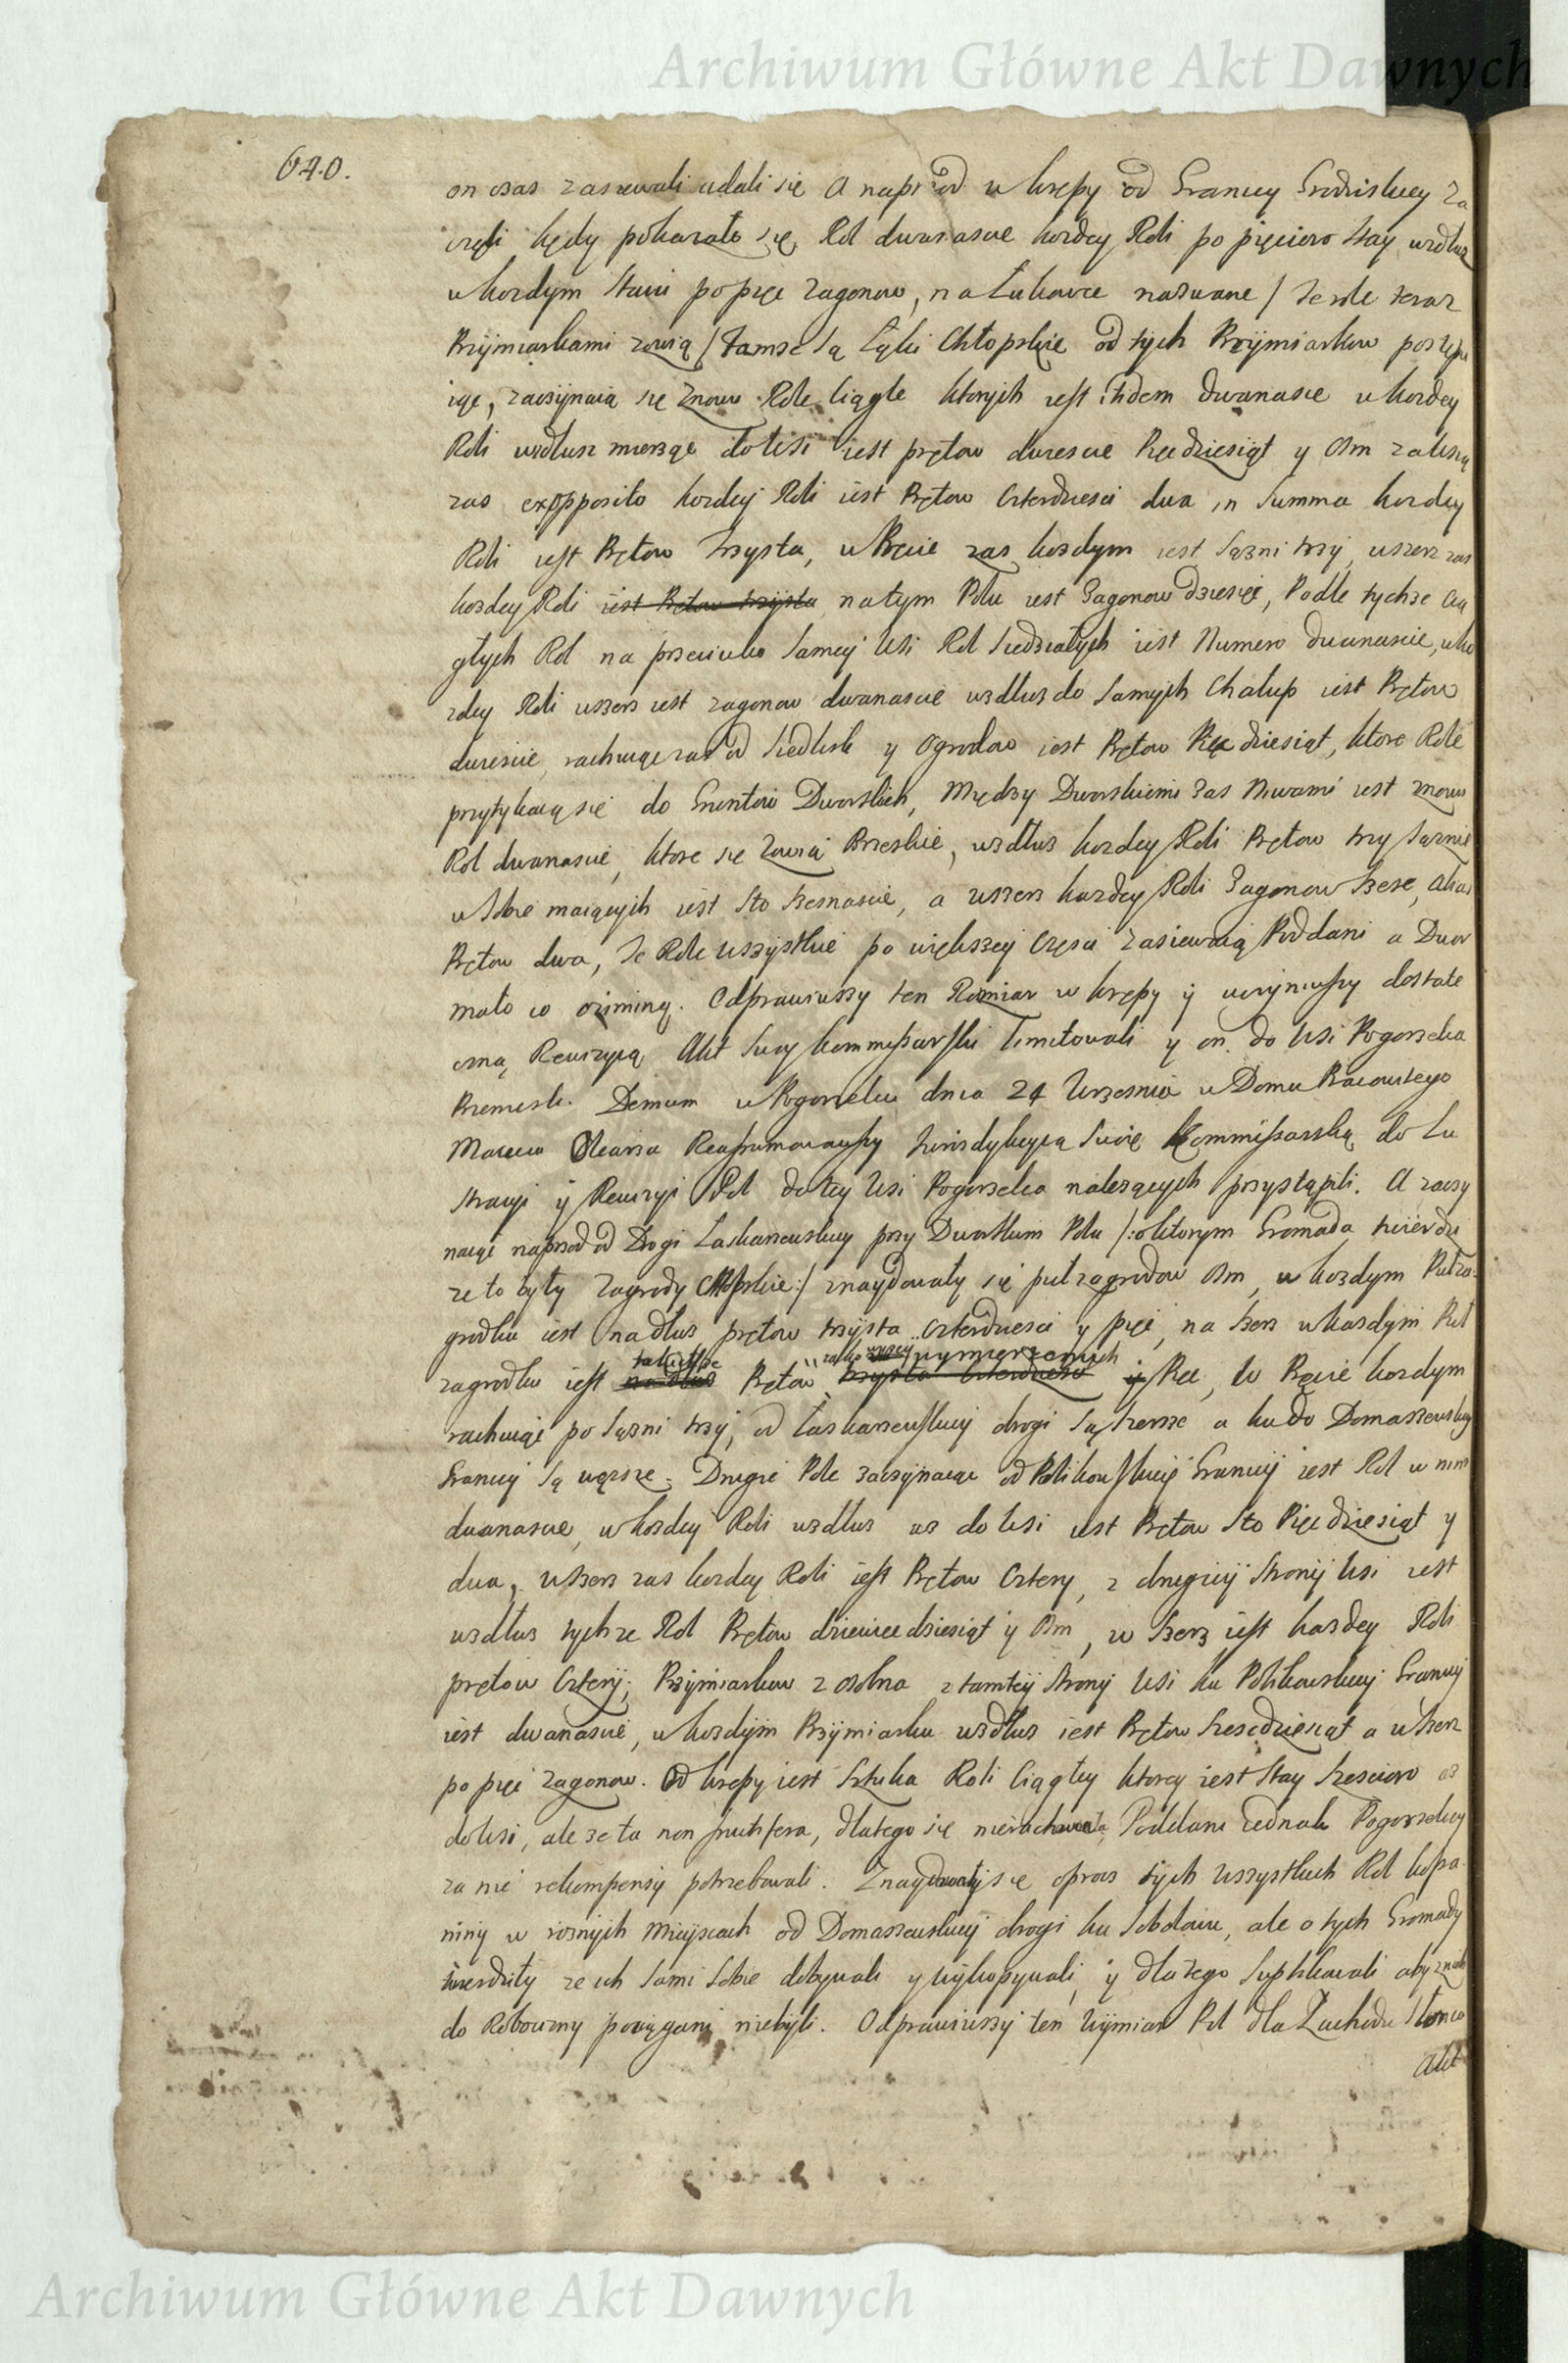 Archiwum Główne Akt Dawnych
640.
on czas zasiewali udali się A naprzod w Krępy od Granicy Grodziskiey Za
częli kędy pokazało się Rol dwanascie kozdey Roli po pięcioro Stay wzdłuz
w kozdym Staiu po pięc zagonow, na Łukowce nazwane / te role teraz
Przymiarkami zowią / Tamze są Łąki Chłopskie od tych Przymiarkow postępu
iąc, zaczynaią się znowu Role Ciągłe ktorych iest itidem dwanascie w kozdey
Roli wzdłusz mierząc do Wsi iest prętow dwiescie Pięcdziesiąt y Osm za Wsią
zas exoppozito kozdey Roli iest Prętow Czterdziesci dwa in Summa kozdey
Roli iest Prętow Trzysta, w Pręcie zas kozdym iest Sązni trzy, wszerz zas
kozdey Roli iest Prętow trzysta na tym Polu iest Zagonow dziesięc, Podle tychze Cią
głych Rol na przeciwko Samey Wsi Rol Siedziałych iest Numero dwanascie, w ko
zdey Roli wszerz iest zagonow dwanascie wzdłuz do Samych Chałup iest Prętow
dwiescie, rachuiąc zas od Siedlisk y Ogrodow iest Prętow Pięcdziesiąt, ktore Role
przytykaią się do Gruntow Dworskich, Między Dworskiemi zas Niwami iest znowu
Rol dwanascie, ktore się zowią Brzeskie, wzdłuz kozdey Roli Prętow trzy Sąznie
w Sobie maiących iest Sto Szesnascie, a wszerz kazdey Roli Zagonow Szesc, albo
Prętow dwa, Te Role wszystkie po większey Częsci zasiewaią Poddani a Dwor
mało co oziminą. Odprawiwszy ten Rozmiar w Krępy y uczyniwszy dostate
czną Rewizyią Akt Swoy Kommissarski Limitowali y on do Wsi Pogorzelca
Przeniesli. Demum w Pogorzelcu dnia 24 Wrzesnia w Domu Pracowitego
Macieia Olearza Reassumowawszy Jurisdykcyią Swoię Kommissarską do Lu
stracyi y Rewizyi Pol do tey Wsi Pogorzelca nalezących przystąpili. A zaczy
naiąc naprzod od Drogi Łaskarzewskiey przy Dworskim Polu /: o ktorym Gromada twierdzi
ze to były Zagrody Chłopskie :/ znaydowały się pułzagrodow Osm, w kozdym Pułza
grodku iest na dłuz prętow trzysta Czterdziesci y pięc, na Szerz w kazdym Puł
zagrodku iest na dłuz Prętow trzysta Czterdziesci y Pięc, W Pręcie kozdym
rachuiąc po Sązni trzy, od Łaskarzewskiey drogi Są Szersze a ku do Domaszewskiey
Granicy Są węzsze. Drugie Pole zaczynaiąc od Polikowskiey Granicy iest Rol w nim
dwanascie, w kozdey Roli wzdłuz az do Wsi iest Prętow Sto Pięcdziesiąt y
dwa, wszerz zas kozdey Roli iest Prętow Cztery, z drugiey Strony Wsi iest
wzdłuz tychze Rol Prętow dziewiecdziesiąt y Osm, w Szerz iest kazdey Roli
prętow Cztery; Przymiarkow z osobna z tamtey Strony Wsi ku Polikowskiey Granicy
iest dwanascie, w kozdym Przymiarku wzdłuz iest Prętow Szescdziesiąt a w Szerz
po pięc zagonow. Od Krępy iest Sztuka Roli Ciągłey ktorey iest Stay Szescioro az
do Wsi, ale ze ta non fructifera, dlatego się nierachowała, Poddani iednak Pogorzelscy
za nię rekompensy potrzebowali. Znaydowały się oprocz tych wszystkich Rol kopa
niny w roznych Mieyscach od Domaszewskiey drogi ku Sobolowi, ale o tych Gromady
twierdziły ze ich Sami Sobie dobywali y wykopywali, y dlatego Supplikowali aby z nich
do Robocizny pociągani niebyli. Odprawiwszy ten Wymiar Pol dla Zachodu Słonca
Akt
Archiwum Główne Akt Dawnych